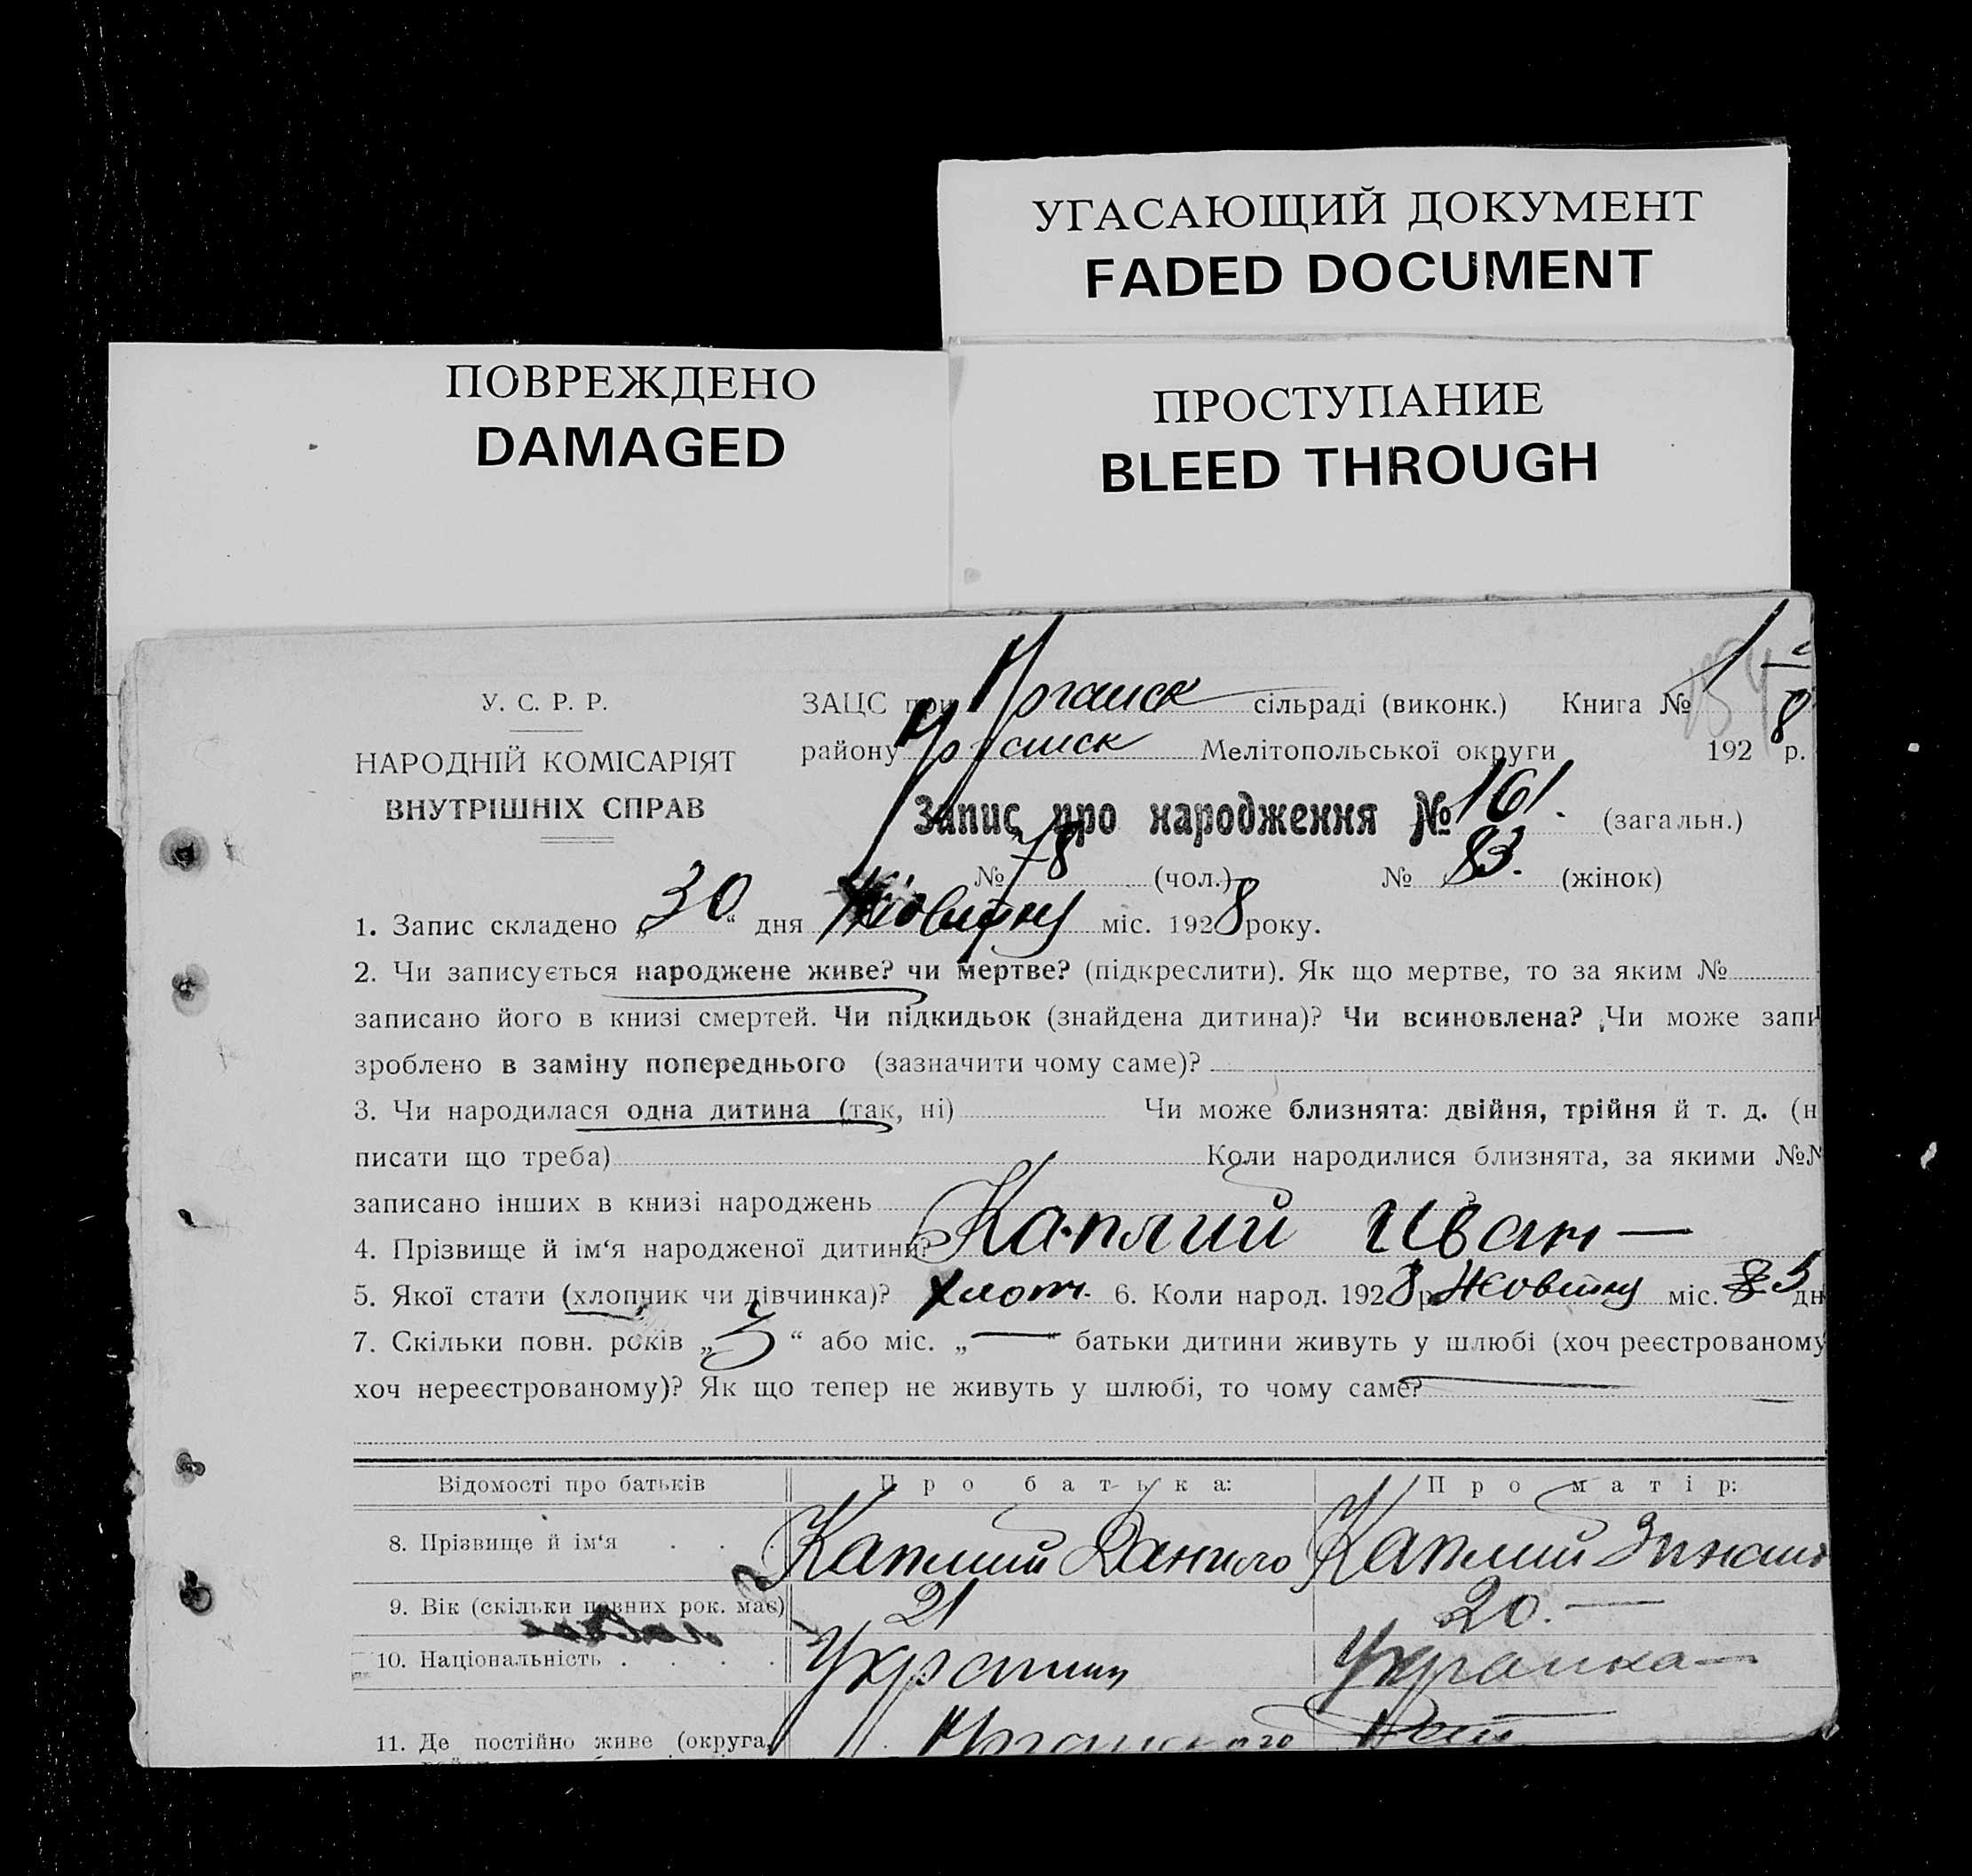 УГАСАЮЩИЙ ДОКУМЕНТ
FADED DOCUMENT
ПОВРЕЖДЕНО
DAMAGED
ПРОСТУПАНИЕ
BLEED THROUGH
У. С. Р. Р.
НАРОДНІЙ КОМІСАРІЯТ
ВНУТРІШНІХ СПРАВ
ЗАЦС при сільраді (виконк.) Книга №
району Мелітопольської округи 1928 р.
Запис про народження № 161. (загальн.)
№ 78 (чол.) № 83. (жінок)
1. Запис складено „30“ дня Жовтню міс. 1928 року.
2. Чи записується народжене живе? чи мертве? (підкреслити). Як що мертве, то за яким №
записано його в книзі смертей. Чи підкидьок (знайдена дитина)? Чи всиновлена? Чи може запи
зроблено в заміну попереднього (зазначити чому саме)?
3. Чи народилася одна дитина (так, ні) Чи може близнята: двійня, трійня й т. д. (н
писати що треба) Коли народилися близнята, за якими №№
записано інших в книзі народжень
4. Прізвище й ім‘я народженої дитини? Каплий Иван —
5. Якої стати (хлопчик чи дівчинка)? хлопч. 6. Коли народ. 1928 р Жовтню міс. 5 дн
7. Скільки повн. років „3“ або міс. „—“ батьки дитини живуть у шлюбі (хоч реєстрованому
хоч нереєстрованому)? Як що тепер не живуть у шлюбі, то чому саме?
Відомості про батьків Про батька: Про матір:
8. Прізвище й ім‘я . . . Каплий Данило Каплий
9. Вік (скільки повних рок. має) 21 20. —
10. Національність . . . . Украинц Украинка —
11. Де постійно живе (округа,